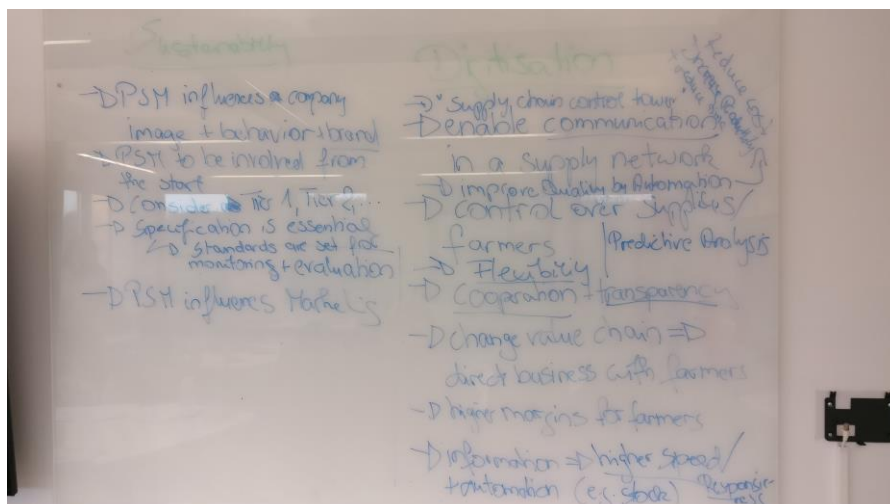 Sustainability
→ PSM influences a company
image + behavior + brand
→ PSM to be involved from
the start
→ Consider Tier 1, Tier 2, ...
→ Specification is essential
↳ Standards are set for
monitoring + evaluation
→ PSM influences Marketing
Digitisation
→ "supply chain control tower"
→ enable communication
in a supply network
→ improve Quality by Automation →
reduce cost
increase productivity
reduce
→ control over supplies/
farmers
Predictive Analysis
→ Flexibility
→ Coopration + transparency
→ change value chain ⇒
direct business with farmers
→ higher margins for farmers
→ information ⇒ higher speed/
+ automation (e.g. stock) Responsive-